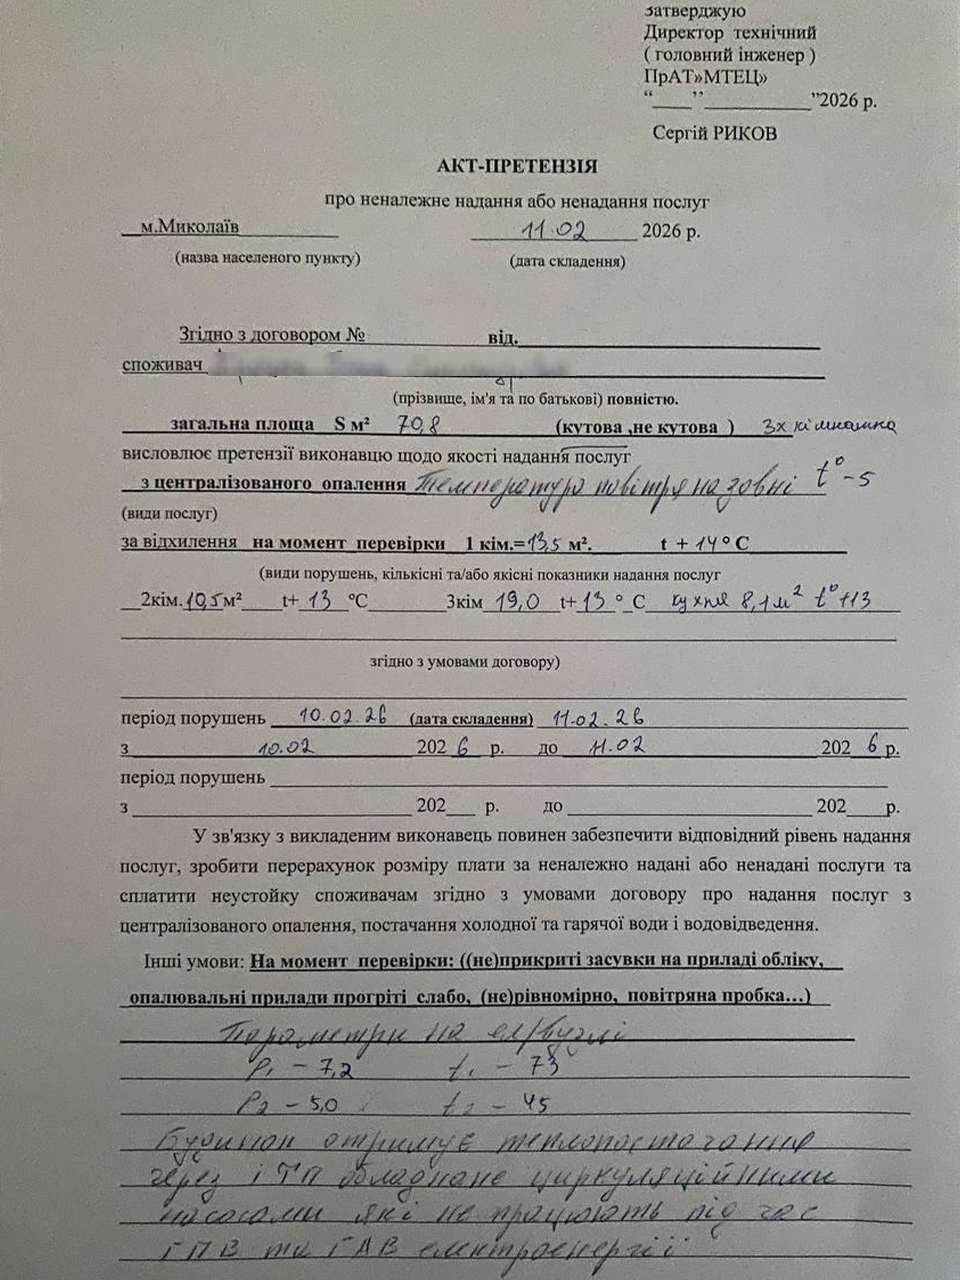 Затверджую
Директор технічний
( головний інженер )
ПрАТ»МТЕЦ»
“____”___________”2026 р.
Сергій РИКОВ
АКТ-ПРЕТЕНЗІЯ
про неналежне надання або ненадання послуг
м.Миколаїв 11.02 2026 р.
(назва населеного пункту) (дата складення)
Згідно з договором № від.
споживач
(прізвище, ім'я та по батькові) повністю.
загальна площа S м² 70,8 (кутова ,не кутова ) 3х кімнатна
висловлює претензії виконавцю щодо якості надання послуг
з централізованого опалення Температура повітря назовні t° -5
(види послуг)
за відхилення на момент перевірки 1 кім.=13,5 м². t + 14° С
(види порушень, кількісні та/або якісні показники надання послуг
2кім.10,5м² t+ 13 °С 3кім 19,0 t+ 13 ° С кухня 8,1 м² t° +13
згідно з умовами договору)
період порушень 10.02.26 (дата складення) 11.02.26
з 10.02 2026 р. до 11.02 2026 р.
період порушень
з 202___ р. до 202___р.
У зв'язку з викладеним виконавець повинен забезпечити відповідний рівень надання
послуг, зробити перерахунок розміру плати за неналежно надані або ненадані послуги та
сплатити неустойку споживачам згідно з умовами договору про надання послуг з
централізованого опалення, постачання холодної та гарячої води і водовідведення.
Інші умови: На момент перевірки: ((не)прикриті засувки на приладі обліку,
опалювальні прилади прогріті слабо, (не)рівномірно, повітряна пробка…)
Параметри на ел/вузлі
P₁ – 7,2 t₁ – 73
P₂ – 5,0 t₂ – 45
Будинок отримує теплопостачання
через ІТП обладнане циркуляційними
насосами які не працюють під час
ГПВ та ГАВ електроенергії